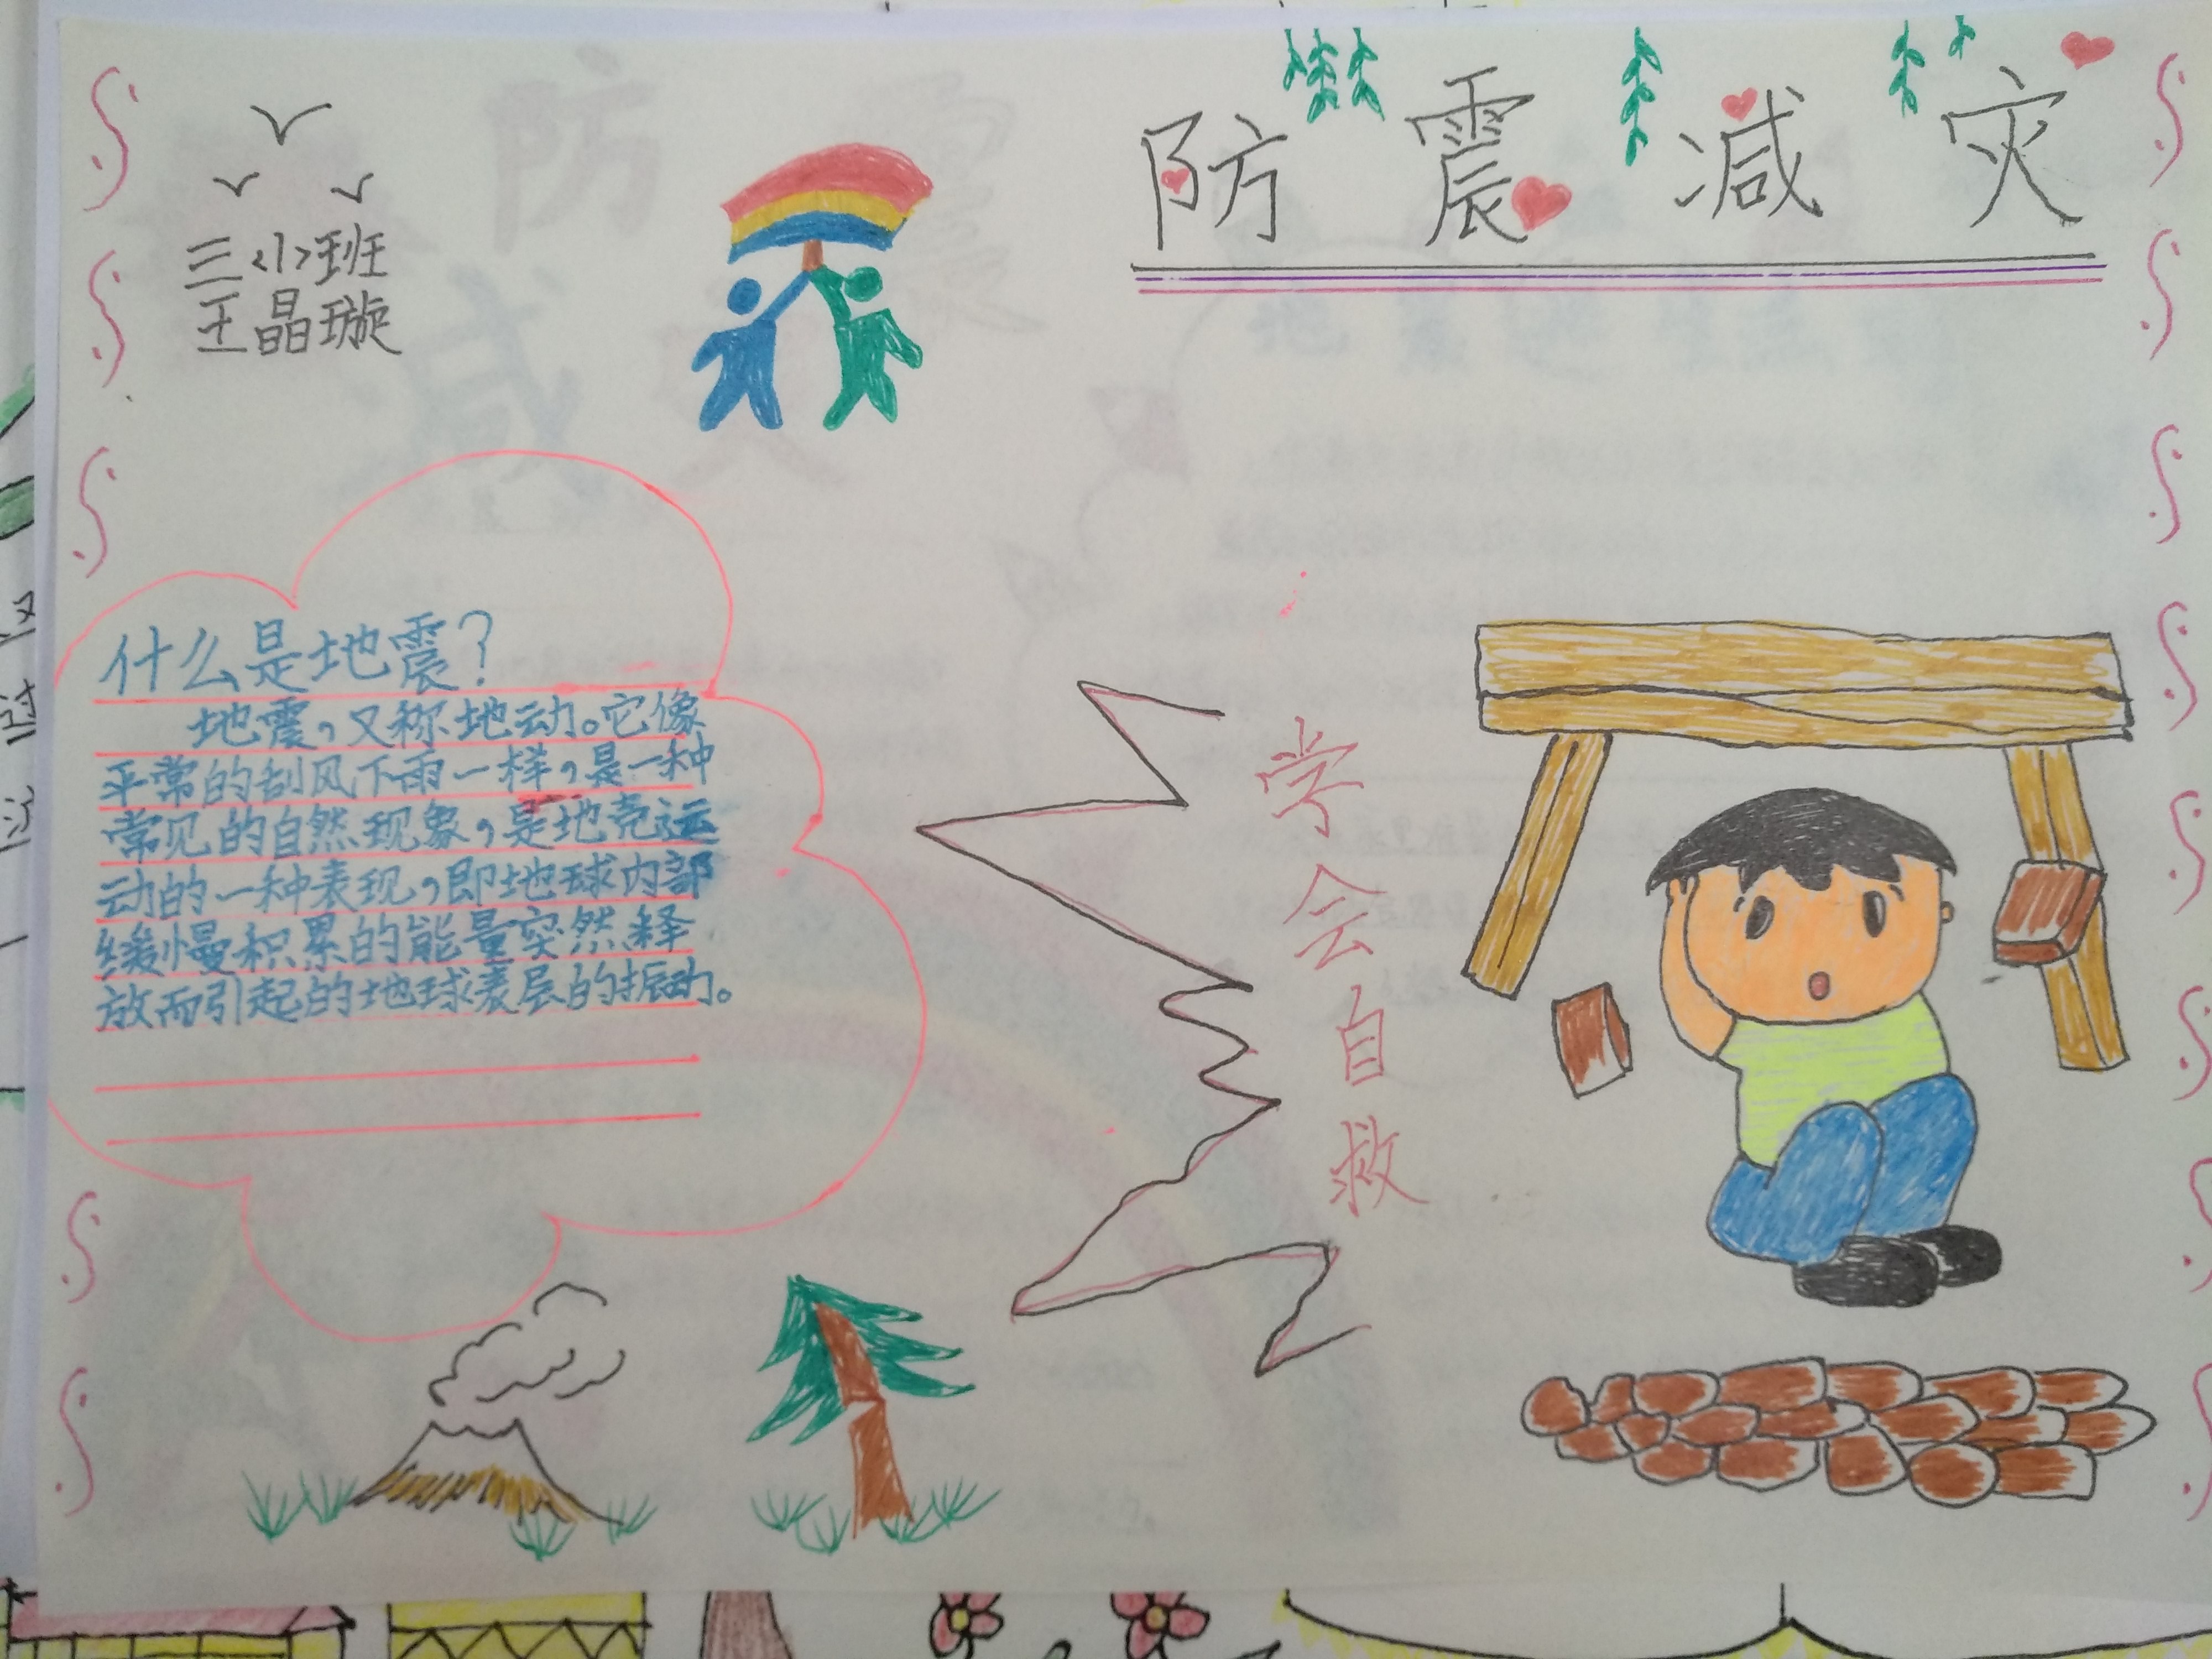 防震减灾
三<小>班
王晶璇
什么是地震？
地震，又称地动。它像
平常的刮风下雨一样，是一种
常见的自然现象，是地壳运
动的一种表现，即地球内部
缓慢积累的能量突然释
放而引起的地球表层的振动。
学会自救